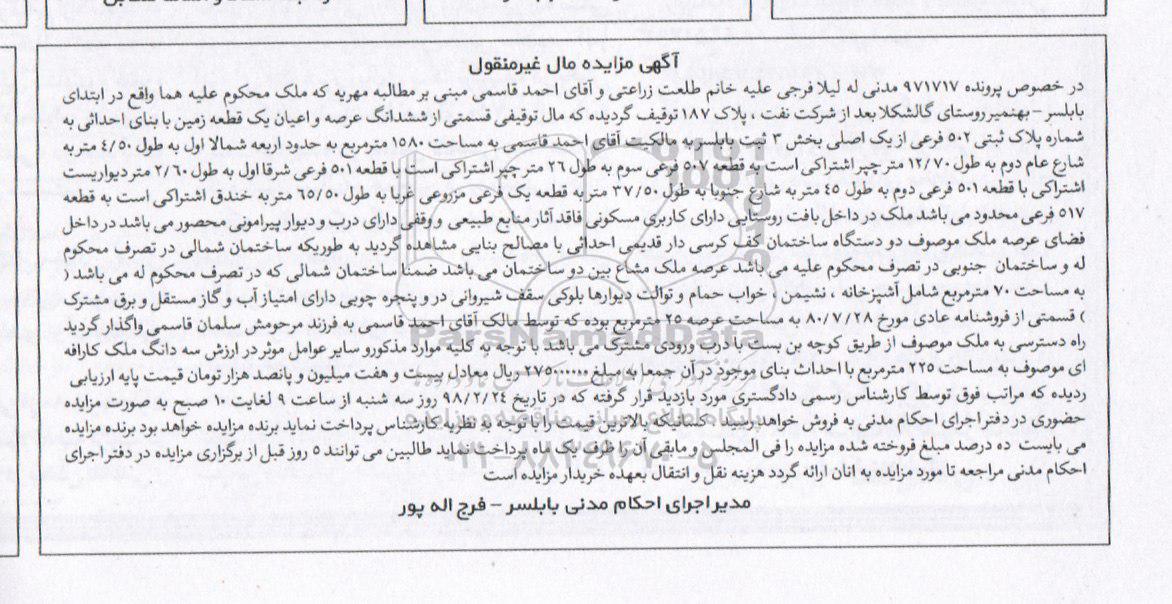 آگهی مزایده مال غیرمنقول
در خصوص پرونده ۹۷۱۷۱۷ مدنی له لیلا فرجی علیه خانم طلعت زراعتی و آقای احمد قاسمی مبنی بر مطالبه مهریه که ملک محکوم علیه هما واقع در ابتدای
بابلسر – بهنمیر روستای گالشکلا بعد از شرکت نفت ، پلاک ۱۸۷ توقیف گردیده که مال توقیفی قسمتی از ششدانگ عرصه و اعیان یک قطعه زمین با بنای احداثی به
شماره پلاک ثبتی ۵۰۲ فرعی از یک اصلی بخش ۳ ثبت بابلسر به مالکیت آقای احمد قاسمی به مساحت ۱۵۸۰ مترمربع به حدود اربعه شمالا اول به طول ۴/۵۰ متر به
شارع عام دوم به طول ۱۲/۷۰ متر چپر اشتراکی است به قطعه ۵۰۷ فرعی سوم به طول ۲۶ متر چپر اشتراکی است با قطعه ۵۰۱ فرعی شرقا اول به طول ۲/۶۰ متر دیواریست
اشتراکی با قطعه ۵۰۱ فرعی دوم به طول ۴۵ متر به شارع جنوبا به طول ۳۷/۵۰ متر به قطعه یک فرعی مزروعی غربا به طول ۶۵/۵۰ متر به خندق اشتراکی است به قطعه
۵۱۷ فرعی محدود می باشد ملک در داخل بافت روستایی دارای کاربری مسکونی فاقد آثار منابع طبیعی و وقفی دارای درب و دیوار پیرامونی محصور می باشد در داخل
فضای عرصه ملک موصوف دو دستگاه ساختمان کف کرسی دار قدیمی احداثی با مصالح بنایی مشاهده گردید به طوریکه ساختمان شمالی در تصرف محکوم
له و ساختمان جنوبی در تصرف محکوم علیه می باشد عرصه ملک مشاع بین دو ساختمان می باشد ضمنا ساختمان شمالی که در تصرف محکوم له می باشد (
به مساحت ۷۰ مترمربع شامل آشپزخانه ، نشیمن ، خواب حمام و توالت دیوارها بلوکی سقف شیروانی در و پنجره چوبی دارای امتیاز آب و گاز مستقل و برق مشترک
) قسمتی از فروشنامه عادی مورخ ۸۰/۷/۲۸ به مساحت عرصه ۲۵ مترمربع بوده که توسط مالک آقای احمد قاسمی به فرزند مرحومش سلمان قاسمی واگذار گردید
راه دسترسی به ملک موصوف از طریق کوچه بن بست با درب ورودی مشترک می باشد با توجه به کلیه موارد مذکورو سایر عوامل موثر در ارزش سه دانگ ملک کارافه
ای موصوف به مساحت ۲۲۵ مترمربع با احداث بنای موجود در آن جمعا به مبلغ ۲۷۵۰۰۰۰۰۰ ریال معادل بیست و هفت میلیون و پانصد هزار تومان قیمت پایه ارزیابی
ردیده که مراتب فوق توسط کارشناس رسمی دادگستری مورد بازدید قرار گرفته که در تاریخ ۹۸/۲/۲۴ روز سه شنبه از ساعت ۹ لغایت ۱۰ صبح به صورت مزایده
حضوری در دفتر اجرای احکام مدنی به فروش خواهد رسید ، کسانیکه بالاترین قیمت را با توجه به نظریه کارشناس پرداخت نماید برنده مزایده خواهد بود برنده مزایده
می بایست ده درصد مبلغ فروخته شده مزایده را فی المجلس و مابقی آن را ظرف یک ماه پرداخت نماید طالبین می توانند ۵ روز قبل از برگزاری مزایده در دفتر اجرای
احکام مدنی مراجعه تا مورد مزایده به انان ارائه گردد هزینه نقل و انتقال بعهده خریدار مزایده است
مدیر اجرای احکام مدنی بابلسر – فرج اله پور
ParsNamadData
پایگاه اطلاع رسانی مناقصه و مزایده